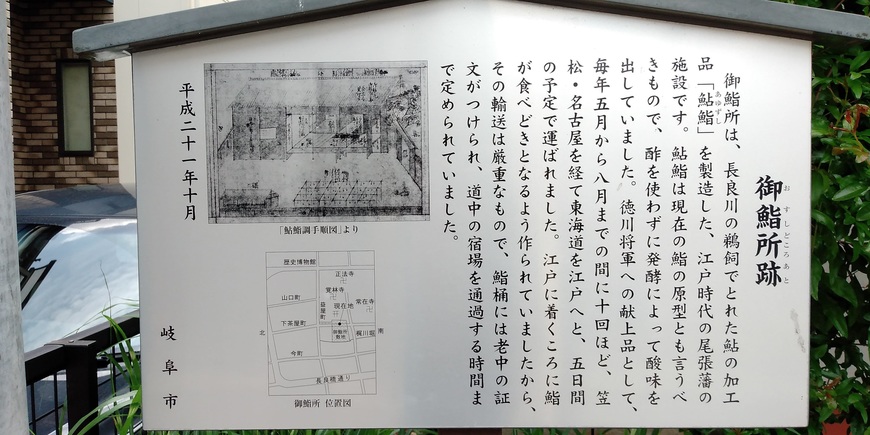 御鮨所跡
おすしどころあと
御鮨所は、長良川の鵜飼でとれた鮎の加工
品「鮎鮨」を製造した、江戸時代の尾張藩の
あゆずし
施設です。鮎鮨は現在の鮨の原型とも言うべ
きもので、酢を使わずに発酵によって酸味を
出していました。徳川将軍への献上品として、
毎年五月から八月までの間に十回ほど、笠
松・名古屋を経て東海道を江戸へと、五日間
の予定で運ばれました。江戸に着くころに鮨
が食べどきとなるよう作られていましたから、
その輸送は厳重なもので、鮨桶には老中の証
文がつけられ、道中の宿場を通過する時間ま
で定められていました。
「鮎鮨調手順図」より
歴史博物館
正法寺
卍
山口町
覚林寺
卍
現在地
常在寺
卍
益屋町
下茶屋町
御鮨所
敷地
梶川堀
北
南
今町
長良橋通り
御鮨所 位置図
平成二十一年十月
岐阜市